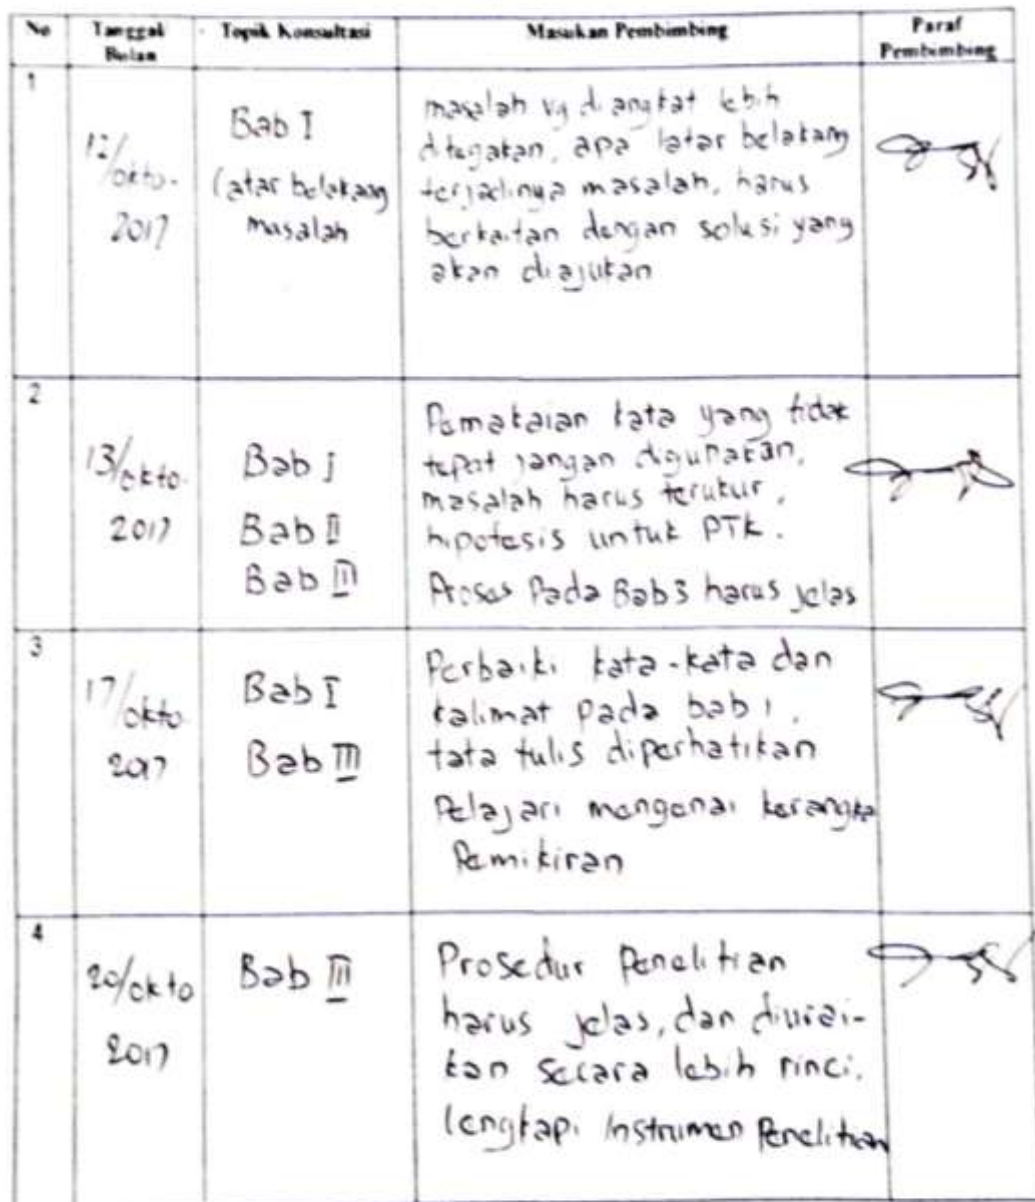 No
Tanggal
Bulan
Topik Konsultasi
Masukan Pembimbing
Paraf
Pembimbing
1
12/okto.
2017
Bab I
(atar belakang
masalah
masalah yg diangkat lebih
ditegakan, apa latar belakang
terjadinya masalah, harus
berkaitan dengan solusi yang
akan diajukan
2
13/okto.
2017
Bab I
Bab II
Bab III
Pemakaian kata yang tidak
tepat jangan digunakan,
masalah harus terukur,
hipotesis untuk PTK.
Proses Pada Bab 3 harus jelas
3
17/okto
2017
Bab I
Bab III
Perbaiki kata-kata dan
kalimat pada bab 1.
tata tulis diperhatikan
Pelajari mengenai kerangka
Pemikiran
4
20/okto
2017
Bab III
Prosedur Penelitian
harus jelas, dan diurai-
kan secara lebih rinci.
lengkapi Instrumen Penelitian